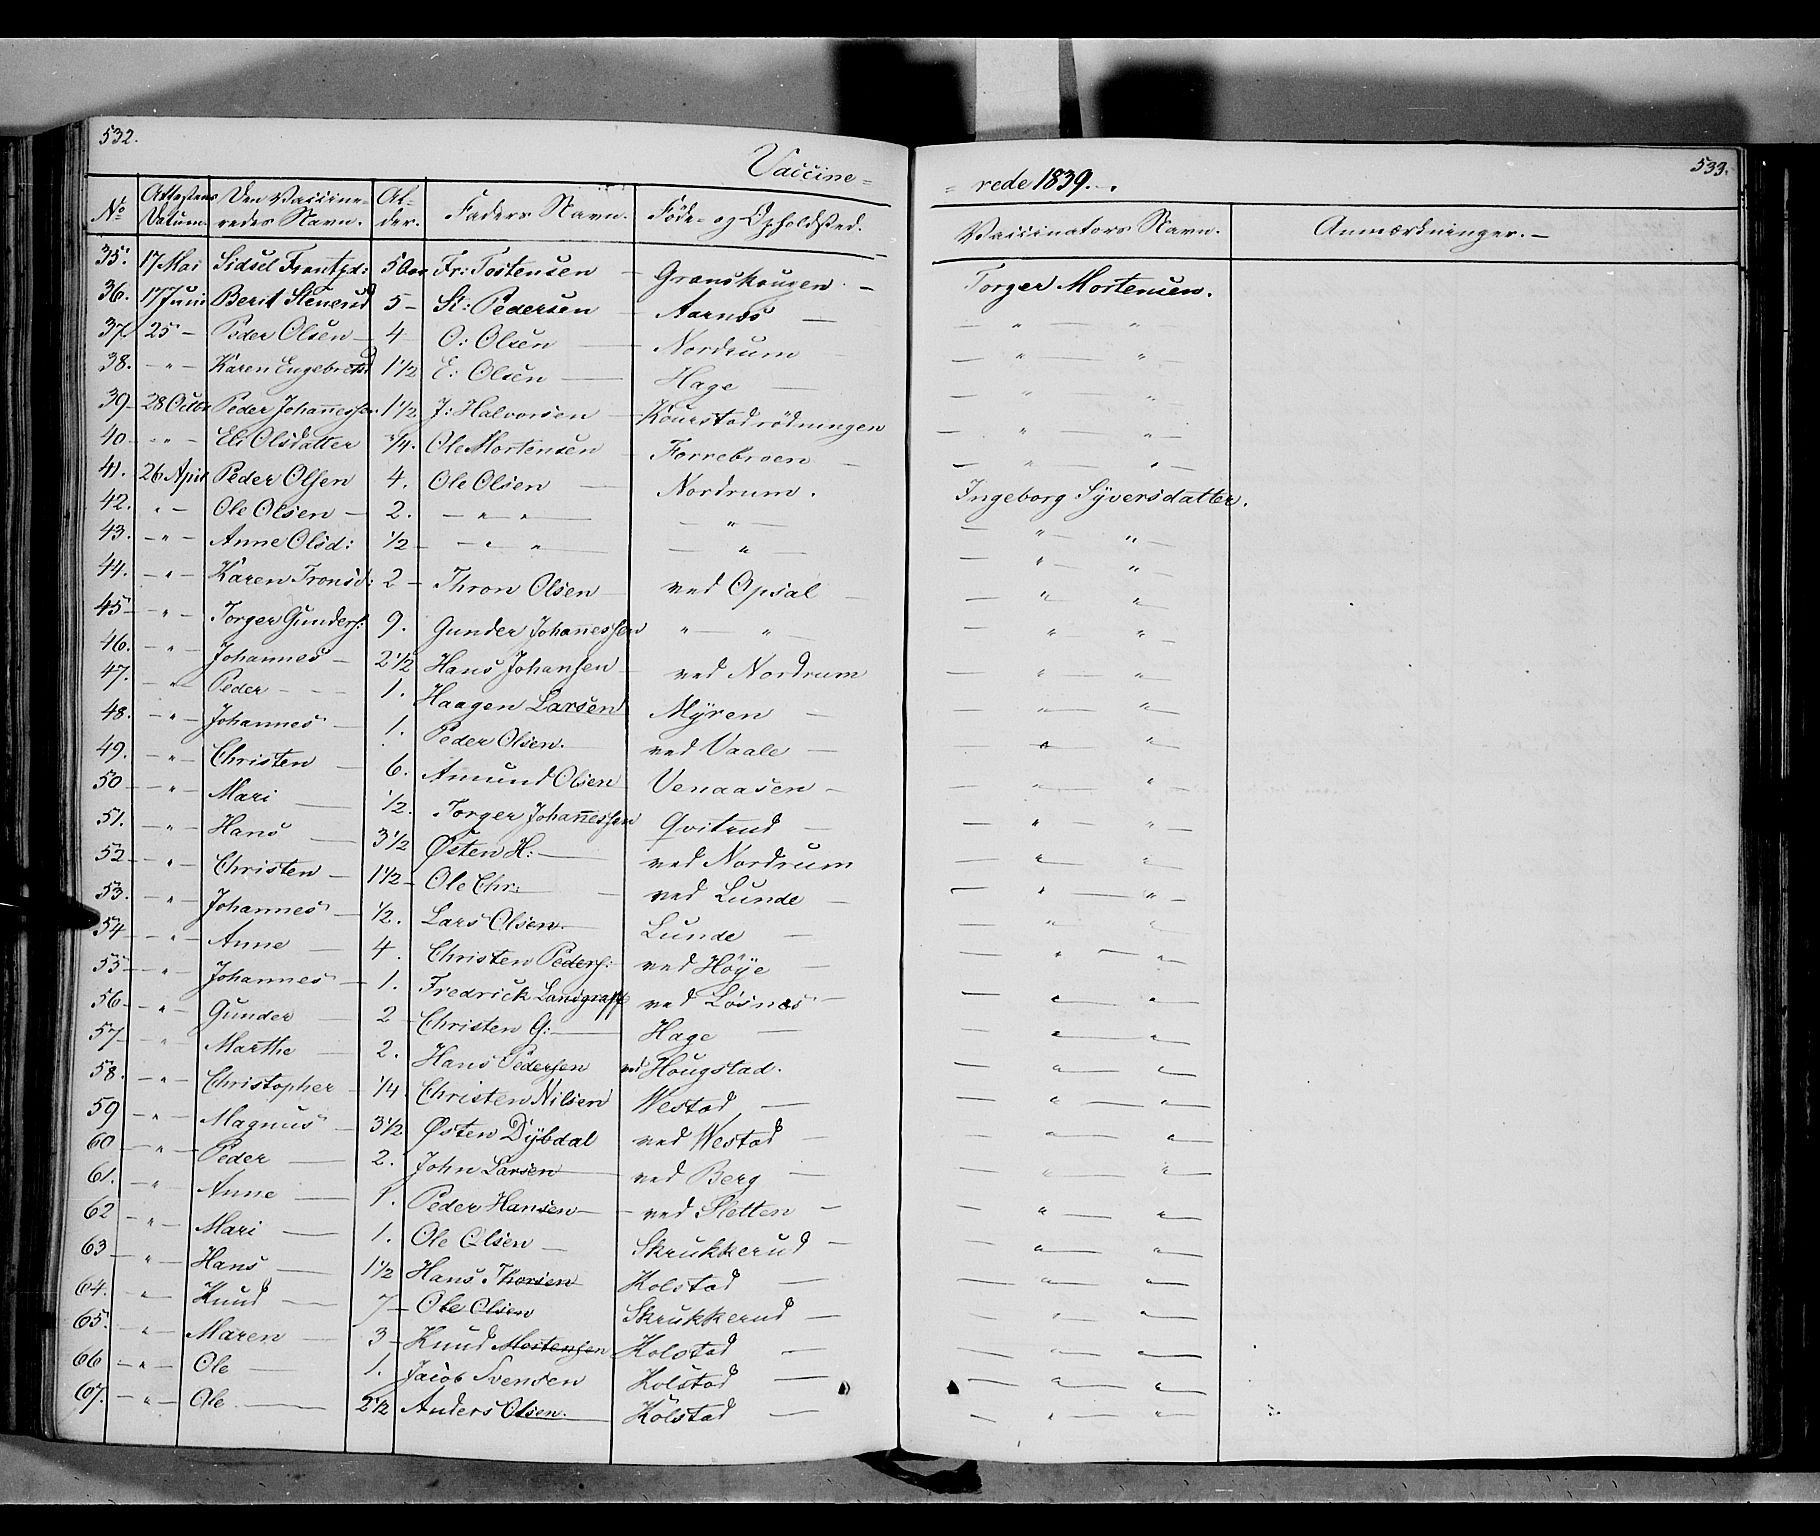 532.
533.
Vaccine-
- rede 1839.
No
Attestens Datum
Den Vaccine-redes Navn.
Al-der.
Faders Navn.
Føde- og Opholdsted.
Vaccinators Navn.
Anmærdninger. —
35. 17 Mai Sidsel Frantzd: 5 Aar Fr: Tostensen — Granskougen — Torger Mortensen.
36. 17 Juni Berit Stenersd 5 — St: Pedersen — Aarnæs — — " — "
37. 25 — Peder Olsen — 4 O: Olsen — Nordrum — " — "
38. — " — Karen Engebretsd 1 1/2 E: Olsen — Hage — — " — "
39 — 28 Octbr Peder Johannessen 1 1/2. J: Halvorsen — Kourstadrødningen — " — "
40 — " — Eli Olsdatter 3/4. Ole Mortensen — Forrebroen — — " — "
41. 26 April Peder Olsen 4. Ole Olsen — Nordrum. Ingeborg Syversdatter.
42. " — Ole Olsen — 2. — " " — — " — — " — " —
43. — " — Anne Olsd: 1/2 — " " — — " — — " — " —
44. — " — Karen Tronsd: 2 — Thron Olsen ved Opsal — — " — " —
45 — " — Torger Gunders: 9. Gunder Johannessen " — " — — " — " —
46. — " — Johannes — 2 1/2 Hans Johansen ved Nordrum — " — " —
47. — " — Peder — 1. Haagen Larsen Myren — — " — " —
48. — " — Johannes — 1. Peder Olsen. ved Vaale — — " — " —
49. — " — Christen — 6. Amund Olsen Venaasen — — " — " —
50 — " — Mari — 1/2. Torger Johannessen Qvitrud — — " — " —
51. — " — Hans — 3 1/2 Østen H: — ved Nordrum — " — " —
52 — " — Christen — 1 1/2 — Ole Chr: — ved Lunde — — " — " —
53. — " — Johannes — 1/2. Lars Olsen. Lunde — — " — " —
54 — " — Anne — 4. Christen Peders: ved Høye — — " — " —
55 — " — Johannes — 1. Fredrick Landgraff ved Løsnæs — — " — " —
56 — " — Gunder — 2 — Christen G: — Hage — — " — " —
57 — " — Marthe — 2. Hans Pedersen ved Hougstad. — " — " —
58. — " — Christopher — 1/4 Christen Nilsen Westad — — " — " —
59 — " — Magnus — 3 1/2 Østen Dybdal ved Westad — — " — " —
60 — " — Peder — 2. John Larsen ved Berg — — " — " —
61. — " — Anne — 1. Peder Hansen — ved Sletten — — " — " —
62 — " — Mari — 1. Ole Olsen — Skrukkerud — — " — " —
63 — " — Hans — 1 1/2 Hans Thorsen Kolstad — — " — " —
64. — " — Knud — 7 — Ole Olsen Skrukkerud — — " — " —
65. — " — Maren — 3 — Knud Mortensen Kolstad — — " — " —
66 — " — Ole — 1. Jacob Svensen Kolstad — — " — " —
67. — " — Ole — 2 1/2 Anders Olsen. Kolstad — — " — " —